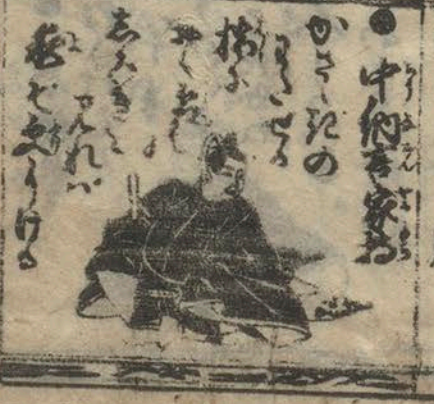 中納言家持
かさゝぎの
わたせる
橋に
おく霜の
しろきを
みれバ
夜ぞふけにける